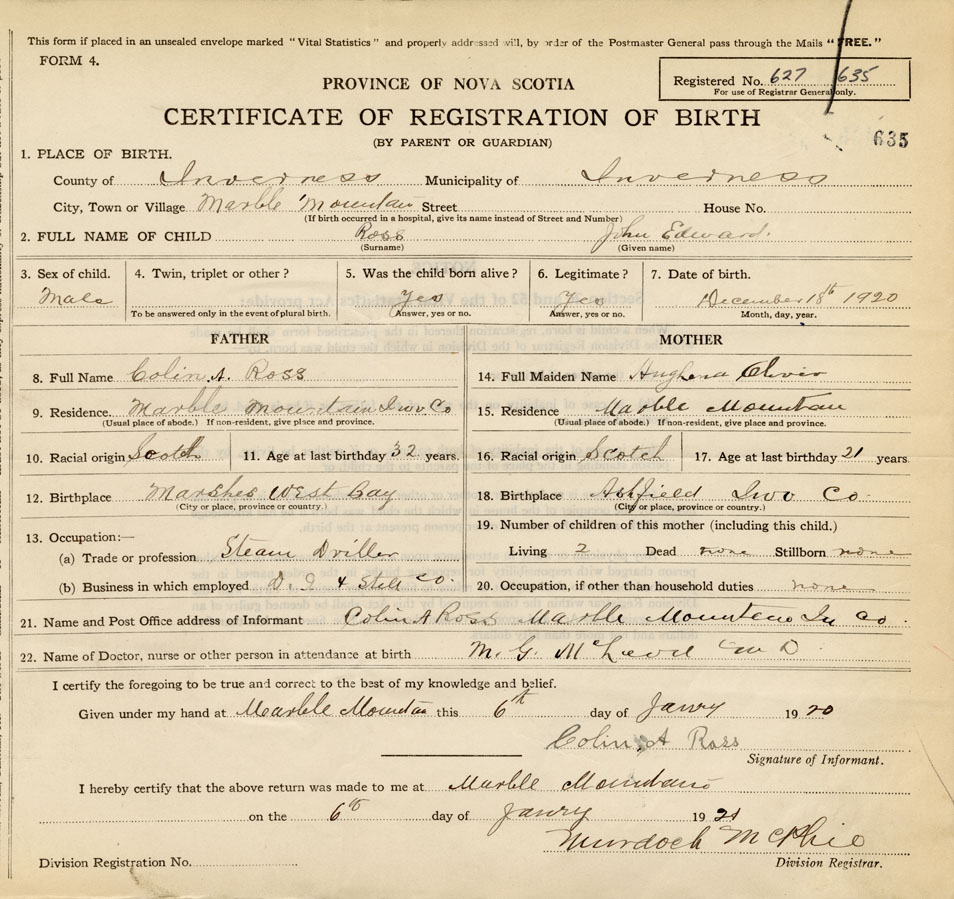 This form if placed in an unsealed envelope marked "Vital Statistics" and properly addressed will, by order of the Postmaster General pass through the Mails "FREE."
FORM 4.
Registered No. 627 635
For use of Registrar General only.
PROVINCE OF NOVA SCOTIA
CERTIFICATE OF REGISTRATION OF BIRTH
(BY PARENT OR GUARDIAN)
635
1. PLACE OF BIRTH.
County of Inverness Municipality of Inverness
City, Town or Village Marble Mountain Street House No.
(If birth occurred in a hospital, give its name instead of Street and Number)
2. FULL NAME OF CHILD Ross John Edward.
(Surname) (Given name)
3. Sex of child. 4. Twin, triplet or other? 5. Was the child born alive? 6. Legitimate? 7. Date of birth.
Male Yes Yes December 18th 1920
To be answered only in the event of plural birth. Answer, yes or no. Answer, yes or no. Month, day, year.
FATHER MOTHER
8. Full Name Colin A. Ross
9. Residence. Marble Mountain Inv Co
(Usual place of abode.) If non-resident, give place and province.
10. Racial origin Scotch 11. Age at last birthday 32 years.
12. Birthplace Marshes West Bay
(City or place, province or country.)
13. Occupation:—
(a) Trade or profession Steam Driller
(b) Business in which employed D. I. & Still Co.
14. Full Maiden Name Hughena
15. Residence Marble Mountain
(Usual place of abode.) If non-resident, give place and province.
16. Racial origin Scotch 17. Age at last birthday 21 years.
18. Birthplace Ashfield Inv Co.
(City or place, province or country.)
19. Number of children of this mother (including this child.)
Living 2 Dead none Stillborn none
20. Occupation, if other than household duties none
21. Name and Post Office address of Informant Colin A Ross Marble Mountain In Co.
22. Name of Doctor, nurse or other person in attendance at birth M. G. McLeod M D
I certify the foregoing to be true and correct to the best of my knowledge and belief.
Given under my hand at Marble Mountain this 6th day of Janry 1920
Colin A Ross
Signature of Informant.
I hereby certify that the above return was made to me at Marble Mountain
on the 6th day of Janry 1921
Murdoch McPhie
Division Registration No. Division Registrar.